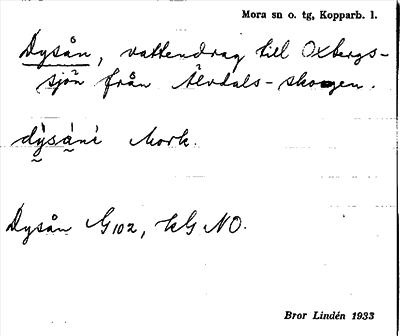 Mora sn o. tg, Kopparb. l.
Dysån, vattendrag till Oxbergs-
sjön från Älvdals-skogen.
dysani Mork.
Dysån G102, kG NO.
Bror Lindén 1933